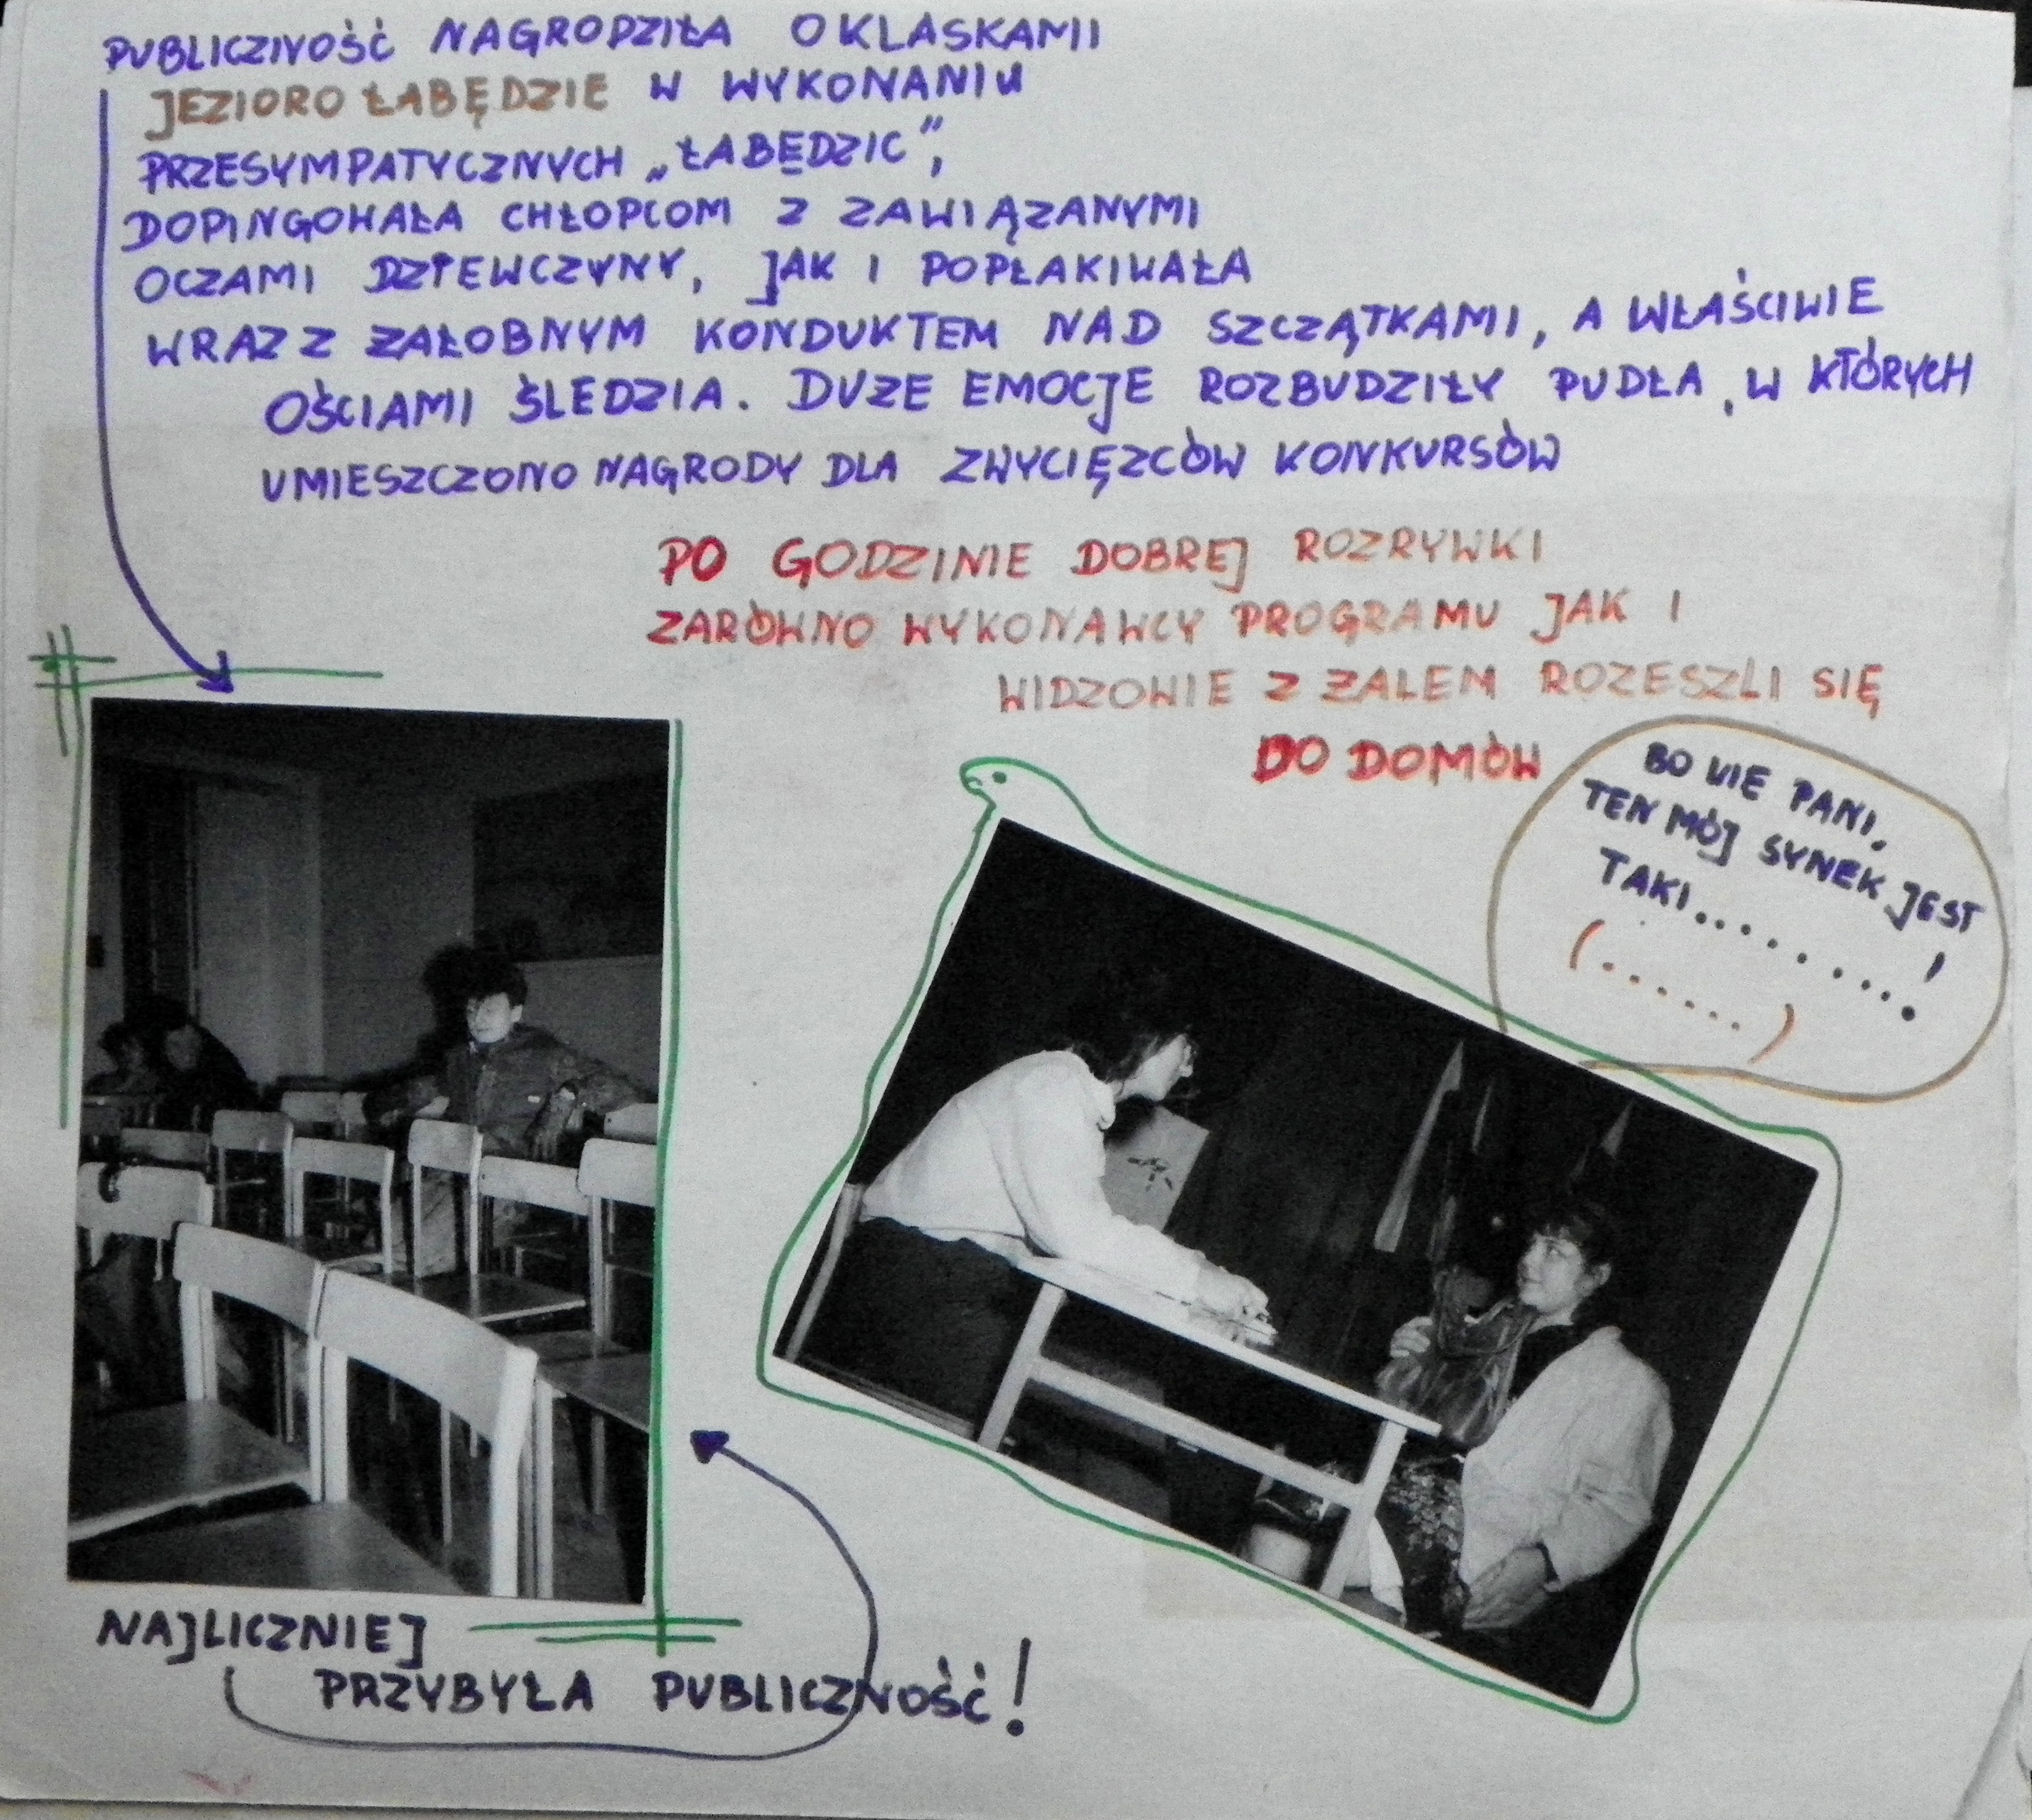 PUBLICZNOŚĆ NAGRODZIŁA OKLASKAMI
JEZIORO ŁABĘDZIE W WYKONANIU
PRZESYMPATYCZNYCH „ŁABĘDZIC",
DOPINGOWAŁA CHŁOPCOM Z ZAWIĄZANYMI
OCZAMI DZIEWCZYNY, JAK I POPŁAKIWAŁA
WRAZ Z ŻAŁOBNYM KONDUKTEM NAD SZCZĄTKAMI, A WŁAŚCIWIE
OŚCIAMI ŚLEDZIA. DUŻE EMOCJE ROZBUDZIŁY PUDŁA, W KTÓRYCH
UMIESZCZONO NAGRODY DLA ZWYCIĘZCÓW KONKURSÓW
PO GODZINIE DOBREJ ROZRYWKI
ZARÓWNO WYKONAWCY PROGRAMU JAK I
WIDZOWIE Z ŻALEM ROZESZLI SIĘ
DO DOMÓW
BO WIE PANI,
TEN MÓJ SYNEK JEST
TAKI..........!
(......)
NAJLICZNIEJ
PRZYBYŁA PUBLICZNOŚĆ!